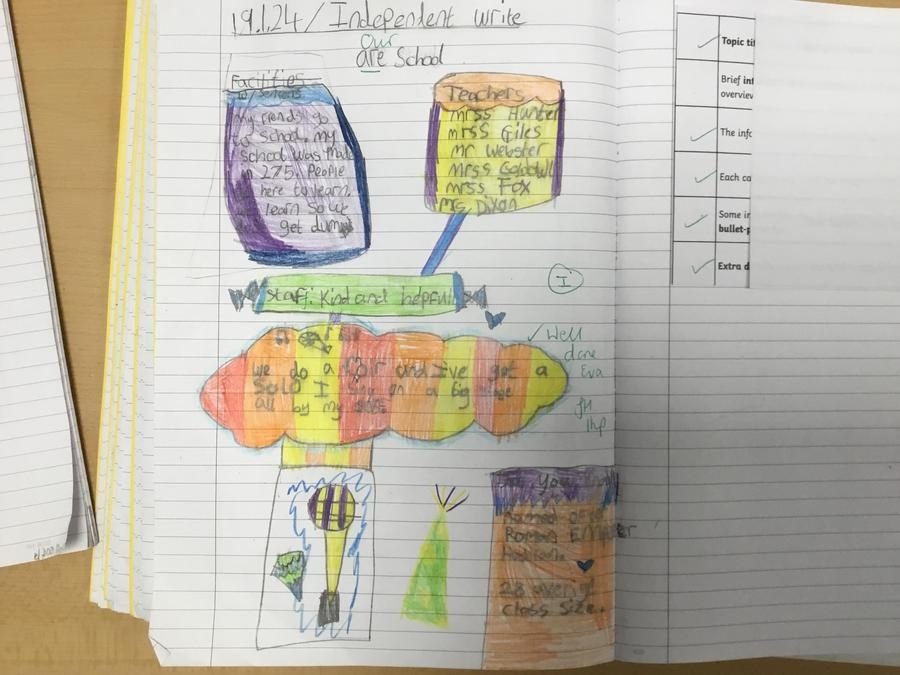 19.1.24 / Independent write
our
are School
Facilities
my friends go
to School. my
School was made
in 275 People
here to learn,
learn So we
get dumb
Teachers
mrss Hunter
mrss Giles
mr webster
mrss
mrss Fox
mrs Dixon
Staff: Kind and helpfull
we do a and I've got a
Solo I on a big
all by my
I
✓ Well
done
Eva
Named
Roman Emperor
28
Class Size.
Topic tit
Brief int
overview
The info
Each ca
Some in
bullet-p
Extra d